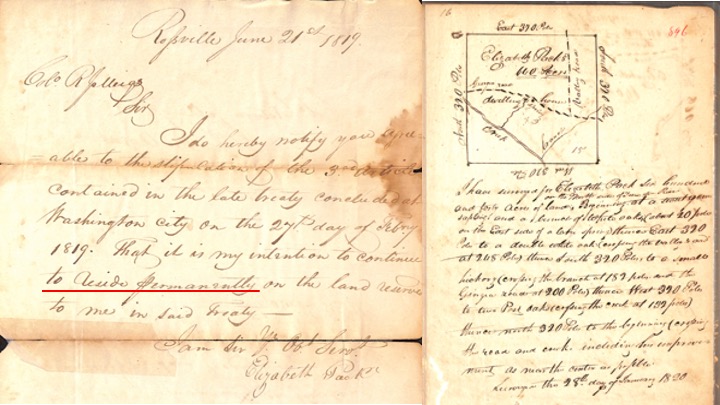 Rossville June 21st 1819.
Colo R J Meigs
Sir
I do hereby notify you agre-
=able to the stipulation of the 3rd article
contained in the late treaty concluded at
Washington city on the 27th day of Febry
1819. That it is my intention to continue
to reside permanently on the land reserve
to me in said treaty—
I am Sir Yr Obt Servt
Elizabeth Pack
16
East 320 Po
Elizabeth Pack's
640 Acres
Georgia road
Valley road
dwelling house
South 320 Po
North 320 Po
Creek
West 320 Po
I have surveyd for Elizabeth Pack Six hundred
and forty Acres of land, Beginning at a
sapling and a bunch of oaks (about 20 poles
on the East side of a spring) thence East 320
Po to a double white oak crossing the valley road
at 248 Poles thence South 320 Poles to a small
hickory crossing the branch at 189 poles and the
Georgia road at 200 Poles thence West 320 Poles
to two Post oaks crossing the creek at 122 poles
thence north 320 Po to the beginning crossing
the road and creek including her improve-
ment as near the centre as possible
Surveyd the 28th day of January 1820